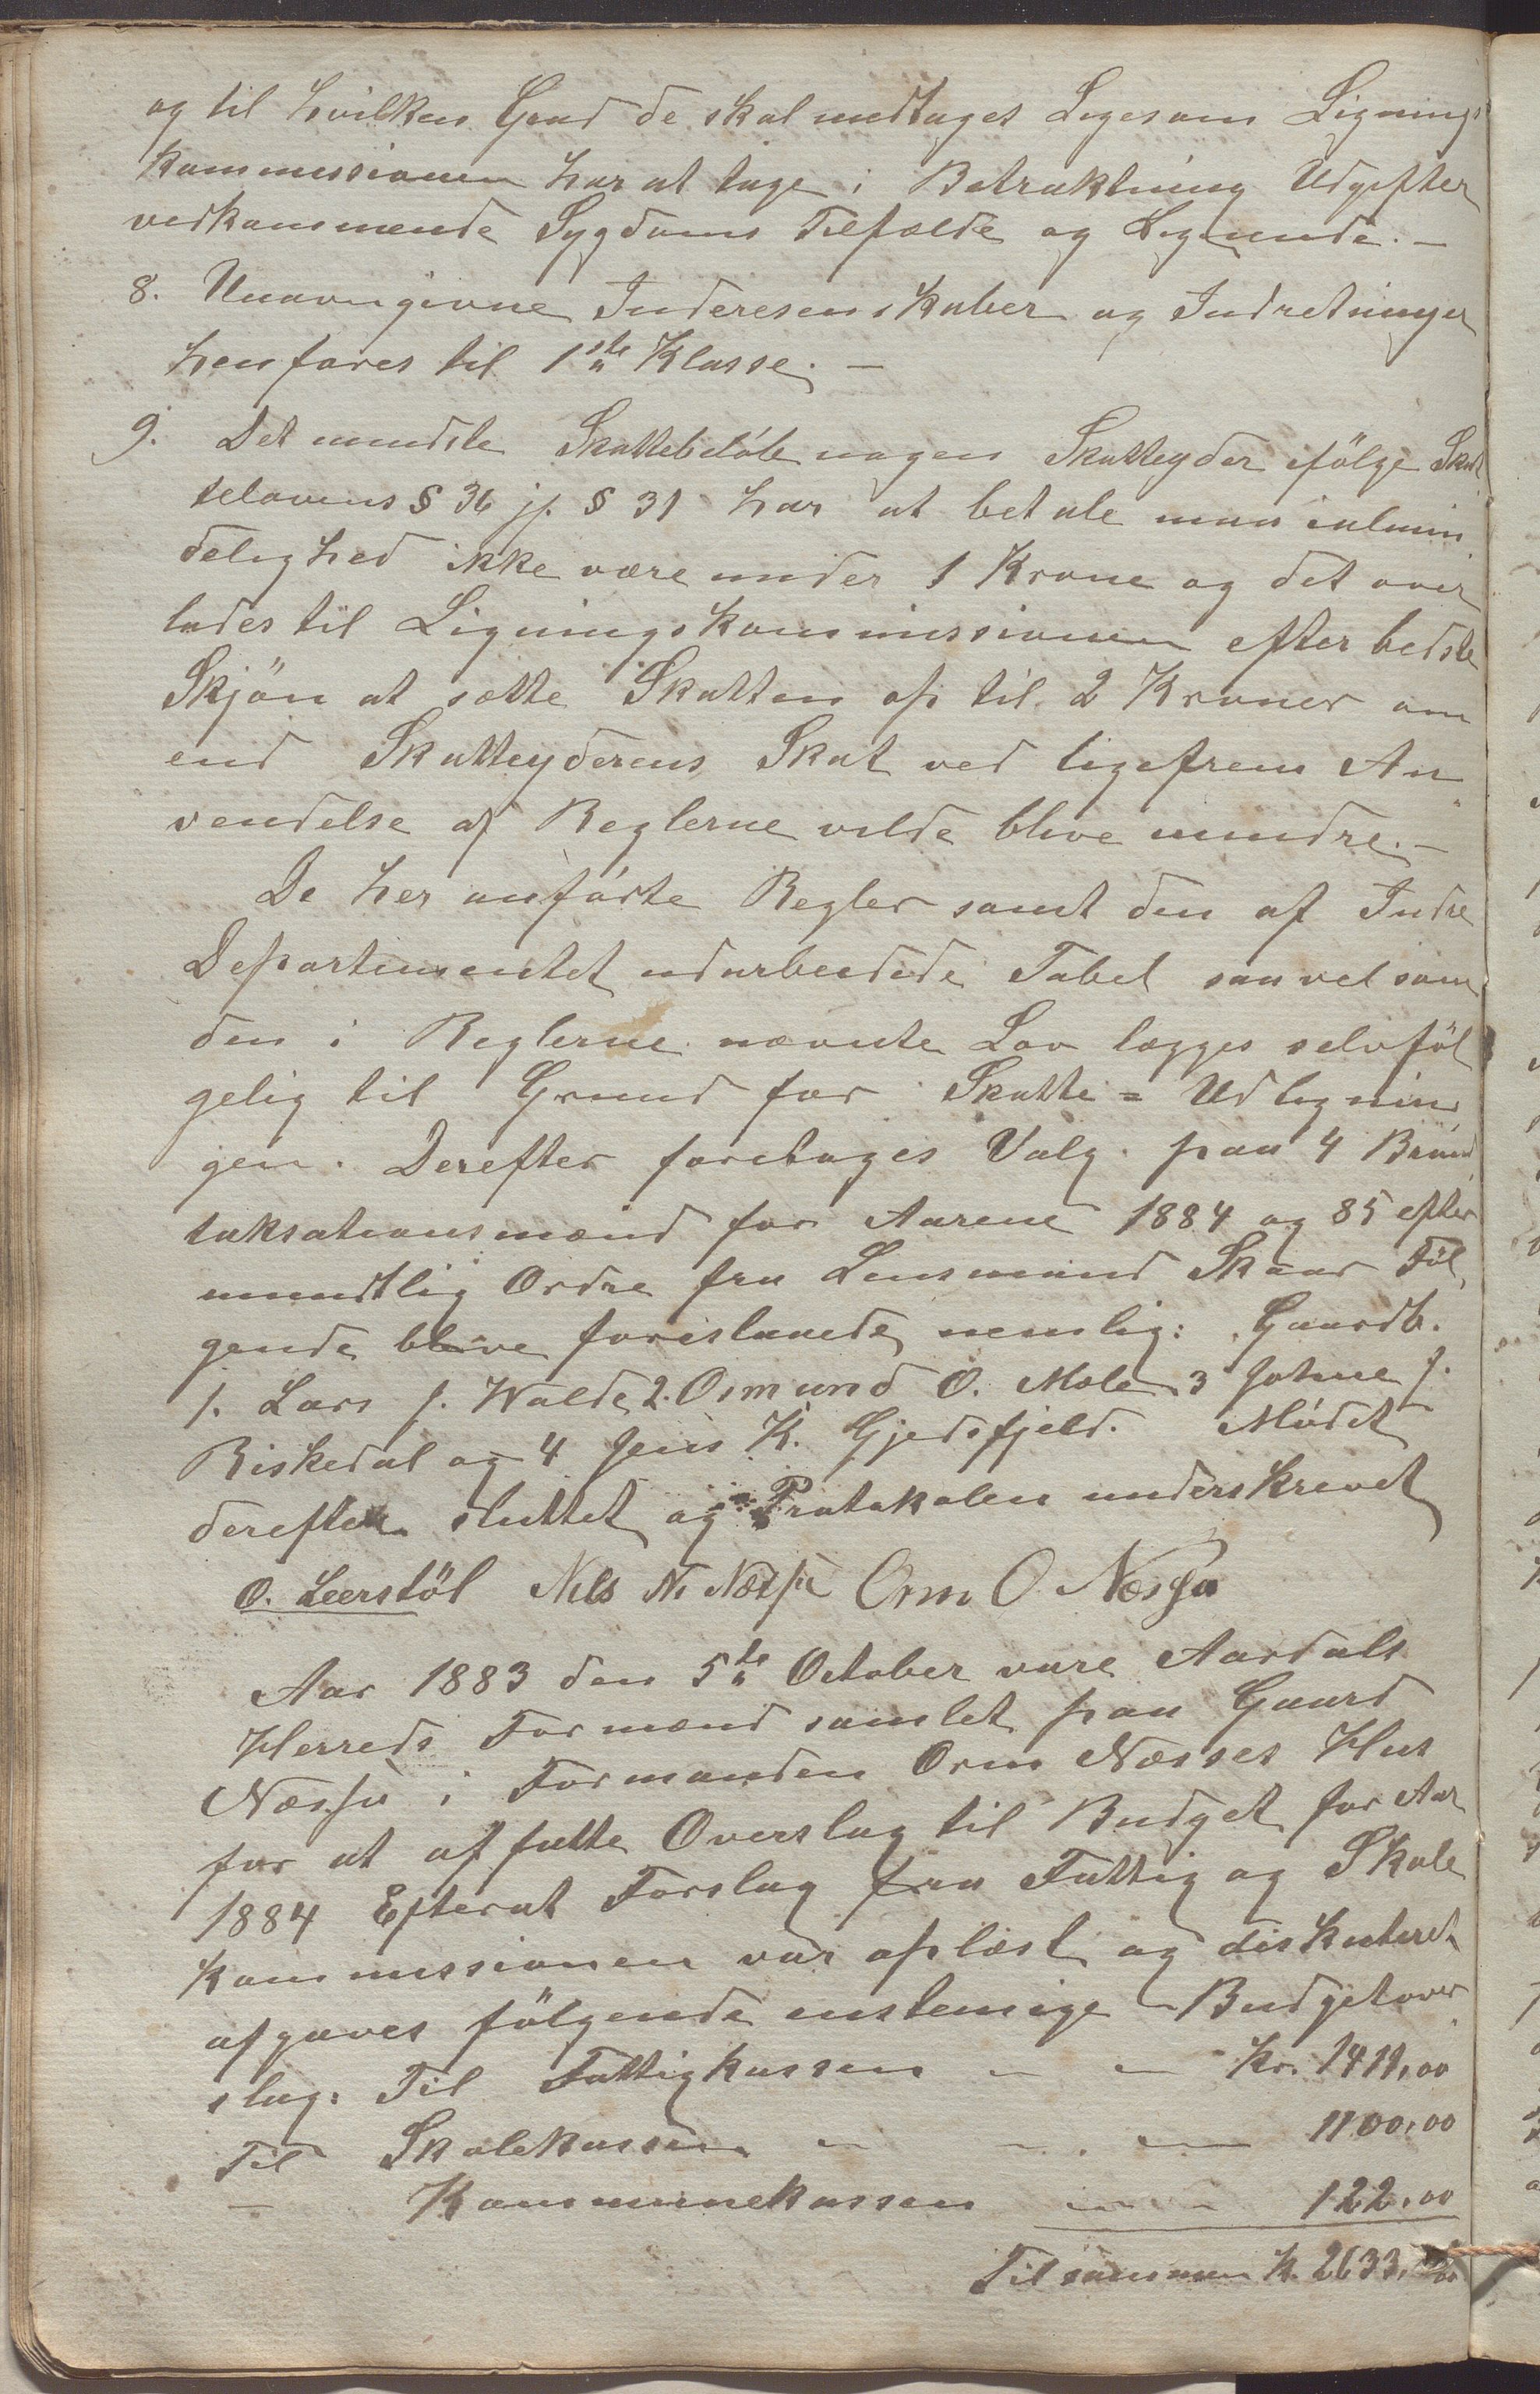 og til hvilken Grad de skal medtages Ligesom Lignings
kommissionen har at tage i Betraktning Udgifter
vedkommende Sygdoms Tilfælde og Lignende. —
8. Unavngivne Inderesenskaber og Indretninger
henføres til 1ste Klasse. —
9. Det mindste Skattebeløb nogen Skatteyder ifølge Skat
telovens § 36 jf. § 31 har at betale maa ialmin
delighed ikke være under 1 Krone og det over
lades til Ligningskommissionen efter bedste
Skjön at sætte Skatten op til 2 Kroner om
end Skatteyderens Skat ved ligefrem An
vendelse af Reglerne vilde blive mindre. —
De her anførte Regler samt den af Indre
Departementet udarbeidede Tabel saavel som
den i Reglerne nævnte Lov lægges selvföl
gelig til Grund for Skatte = Udlignin
gen. Derefter foretages Valg paa 4 Brand
taksationsmænd for Aarene 1884 og 85 efter
mundtlig Ordre fra Lensmand Skaar Föl
gende bleve foreslaaede nemlig: Gaardb.
1. Lars J. Valde 2. Osmund O. Mæle 3 Johne J.
Riskedal og 4 Jens K. Gjedsfjeld. Mödet
derefter sluttet og Protokolen underskrevet
O. Leerstöl Nils N. Næsse Orm O. Næssa
Aar 1883 den 5te October vare Aardals
Herreds Formænd samlet paa Gaard
Næsse i Formanden Orm Næsses Hus
for at affatte Overslag til Budget for Aar
1884 Efterat Forslag fra Fattig og Skole
kommissionen var oplæst og diskuteret
afgaves fölgende enstemige Budgetover
slag: Til Fattigkassen — — kr. 1411,00
Til Skolekassen — — — 1100,00
— Kommunekassen — — 122,00
Tilsammen K. 2633,00